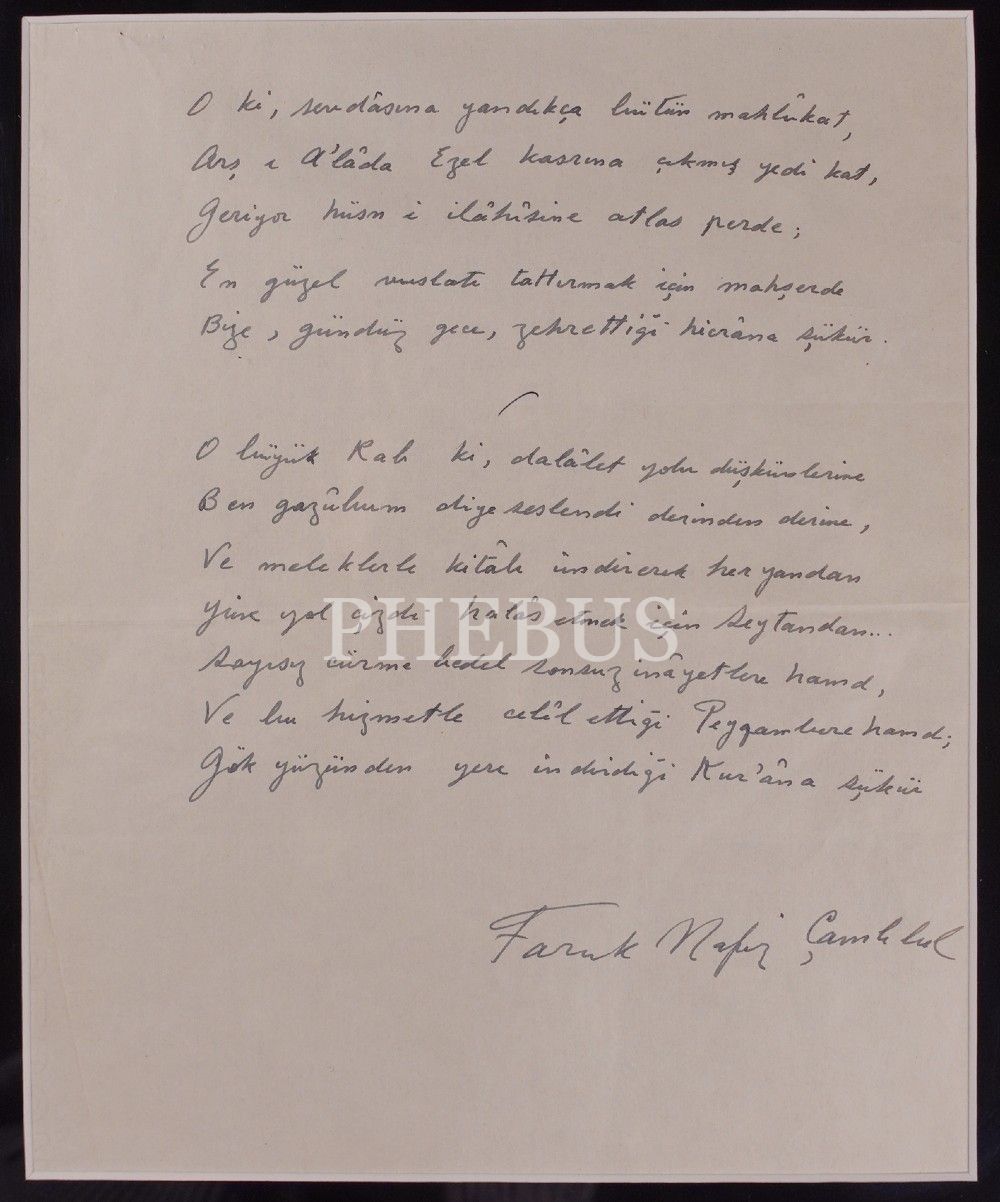 O ki, sevdâsına yandıkça bütün mahlûkat,
Arş ı A'lâda Ezel kasrına çıkmış yedi kat,
Geriyor hüsn i ilâhîsine atlas perde;
En güzel vuslatı tattırmak için mahşerde
Bize, gündüz gece, zehrettiği hicrâna şükür.
O büyük Rab ki, dalâlet yolu düşkünlerine
Ben gazûbum diye seslendi derinden derine,
Ve meleklerle kitâb indirerek her yandan
Yine yol çizdi halâs etmek için Şeytandan...
PHEBUS
Sayısız cürme bedel sonsuz inâyetlere hamd,
Ve bu hizmetle celîl ettiği Peygambere hamd;
Gök yüzünden yere indirdiği Kur'âna şükür
Faruk Nafiz Çamlıbel